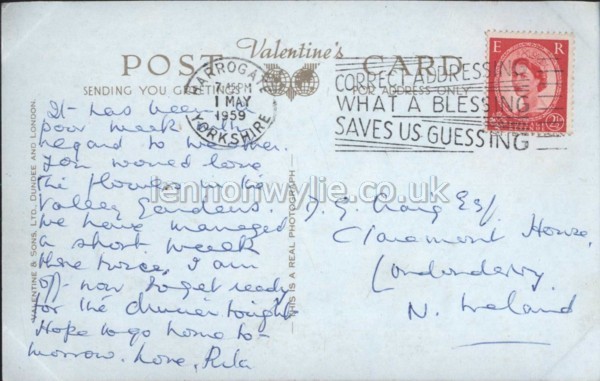 POST Valentine's CARD
SENDING YOU GREETINGS FOR ADDRESS ONLY
HARROGATE
7.15PM
1 MAY
1959
YORKSHIRE
CORRECT ADDRESSING
WHAT A BLESSING
SAVES US GUESSING
E R
It has been a
poor week
regard to weather.
You would love
the flowers in the
Valley Gardens.
We have managed
a short walk
there twice, I am
off now to get ready
for the dinner tonight
Hope to go home to-
morrow. Love, Rita
D. G. Craig Esq.
Claremont House,
Londonderry
N. Ireland
VALENTINE & SONS, LTD., DUNDEE AND LONDON.
THIS IS A REAL PHOTOGRAPH
lennonwylie.co.uk